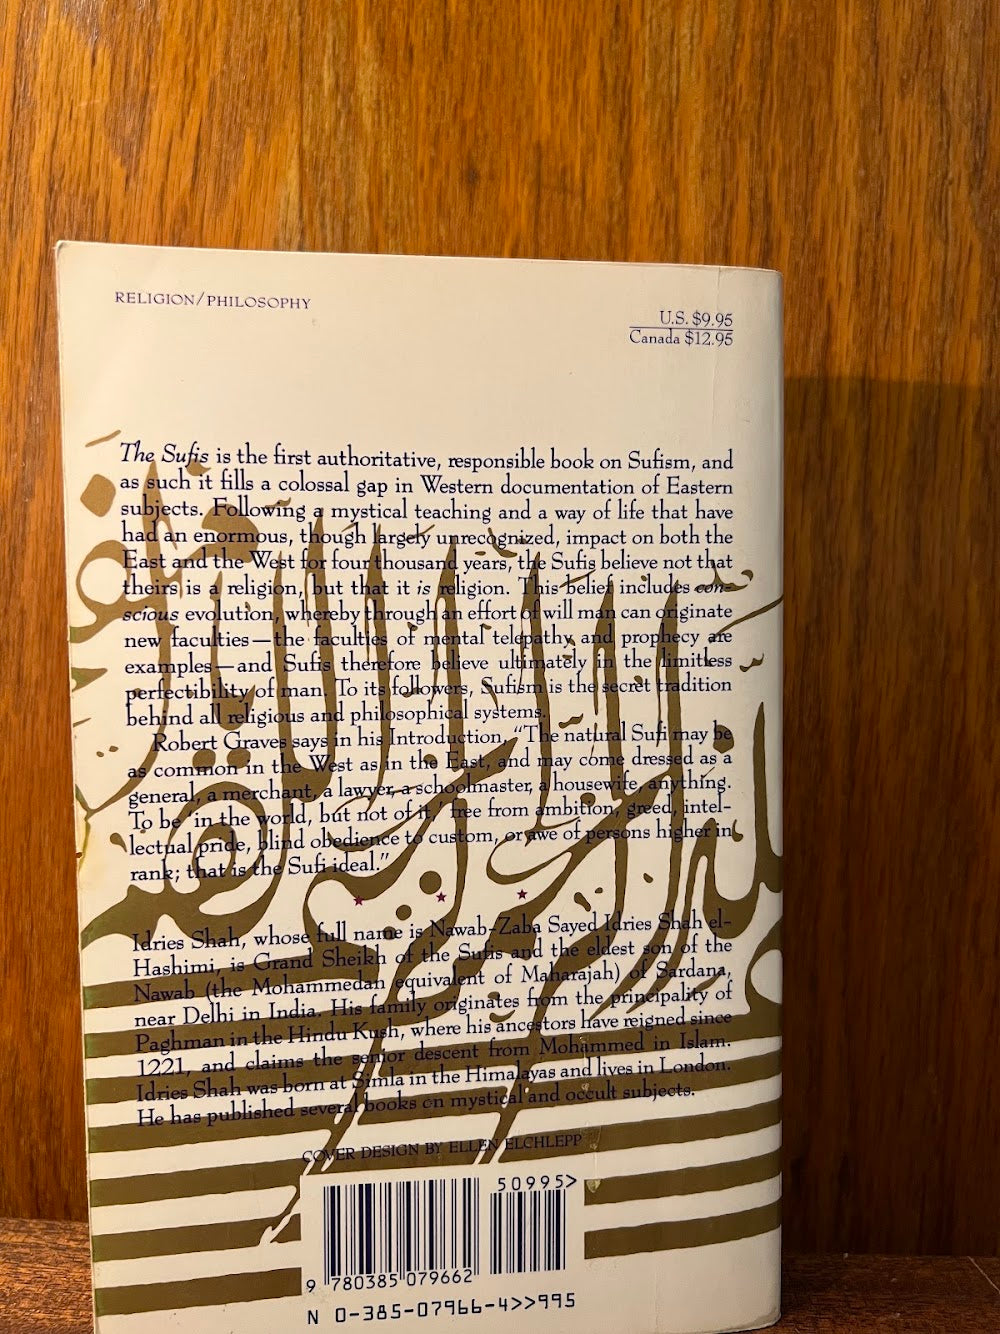 RELIGION/PHILOSOPHY
U.S. $9.95
Canada $12.95
The Sufis is the first authoritative, responsible book on Sufism, and
as such it fills a colossal gap in Western documentation of Eastern
subjects. Following a mystical teaching and a way of life that have
had an enormous, though largely unrecognized, impact on both the
East and the West for four thousand years, the Sufis believe not that
theirs is a religion, but that it is religion. This belief includes con-
scious evolution, whereby through an effort of will man can originate
new faculties—the faculties of mental telepathy and prophecy are
examples—and Sufis therefore believe ultimately in the limitless
perfectibility of man. To its followers, Sufism is the secret tradition
behind all religious and philosophical systems.
Robert Graves says in his Introduction, “The natural Sufi may be
as common in the West as in the East, and may come dressed as a
general, a merchant, a lawyer, a schoolmaster, a housewife, anything.
To be ‘in the world, but not of it,’ free from ambition, greed, intel-
lectual pride, blind obedience to custom, or awe of persons higher in
rank; that is the Sufi ideal.”
Idries Shah, whose full name is Nawab-Zaba Sayed Idries Shah el-
Hashimi, is Grand Sheikh of the Sufis and the eldest son of the
Nawab (the Mohammedan equivalent of Maharajah) of Sardana,
near Delhi in India. His family originates from the principality of
Paghman in the Hindu Kush, where his ancestors have reigned since
1221, and claims the senior descent from Mohammed in Islam.
Idries Shah was born at Simla in the Himalayas and lives in London.
He has published several books on mystical and occult subjects.
COVER DESIGN BY ELLEN ELCHLEPP
50995>
9 780385 079662
N 0-385-07966-4>>995